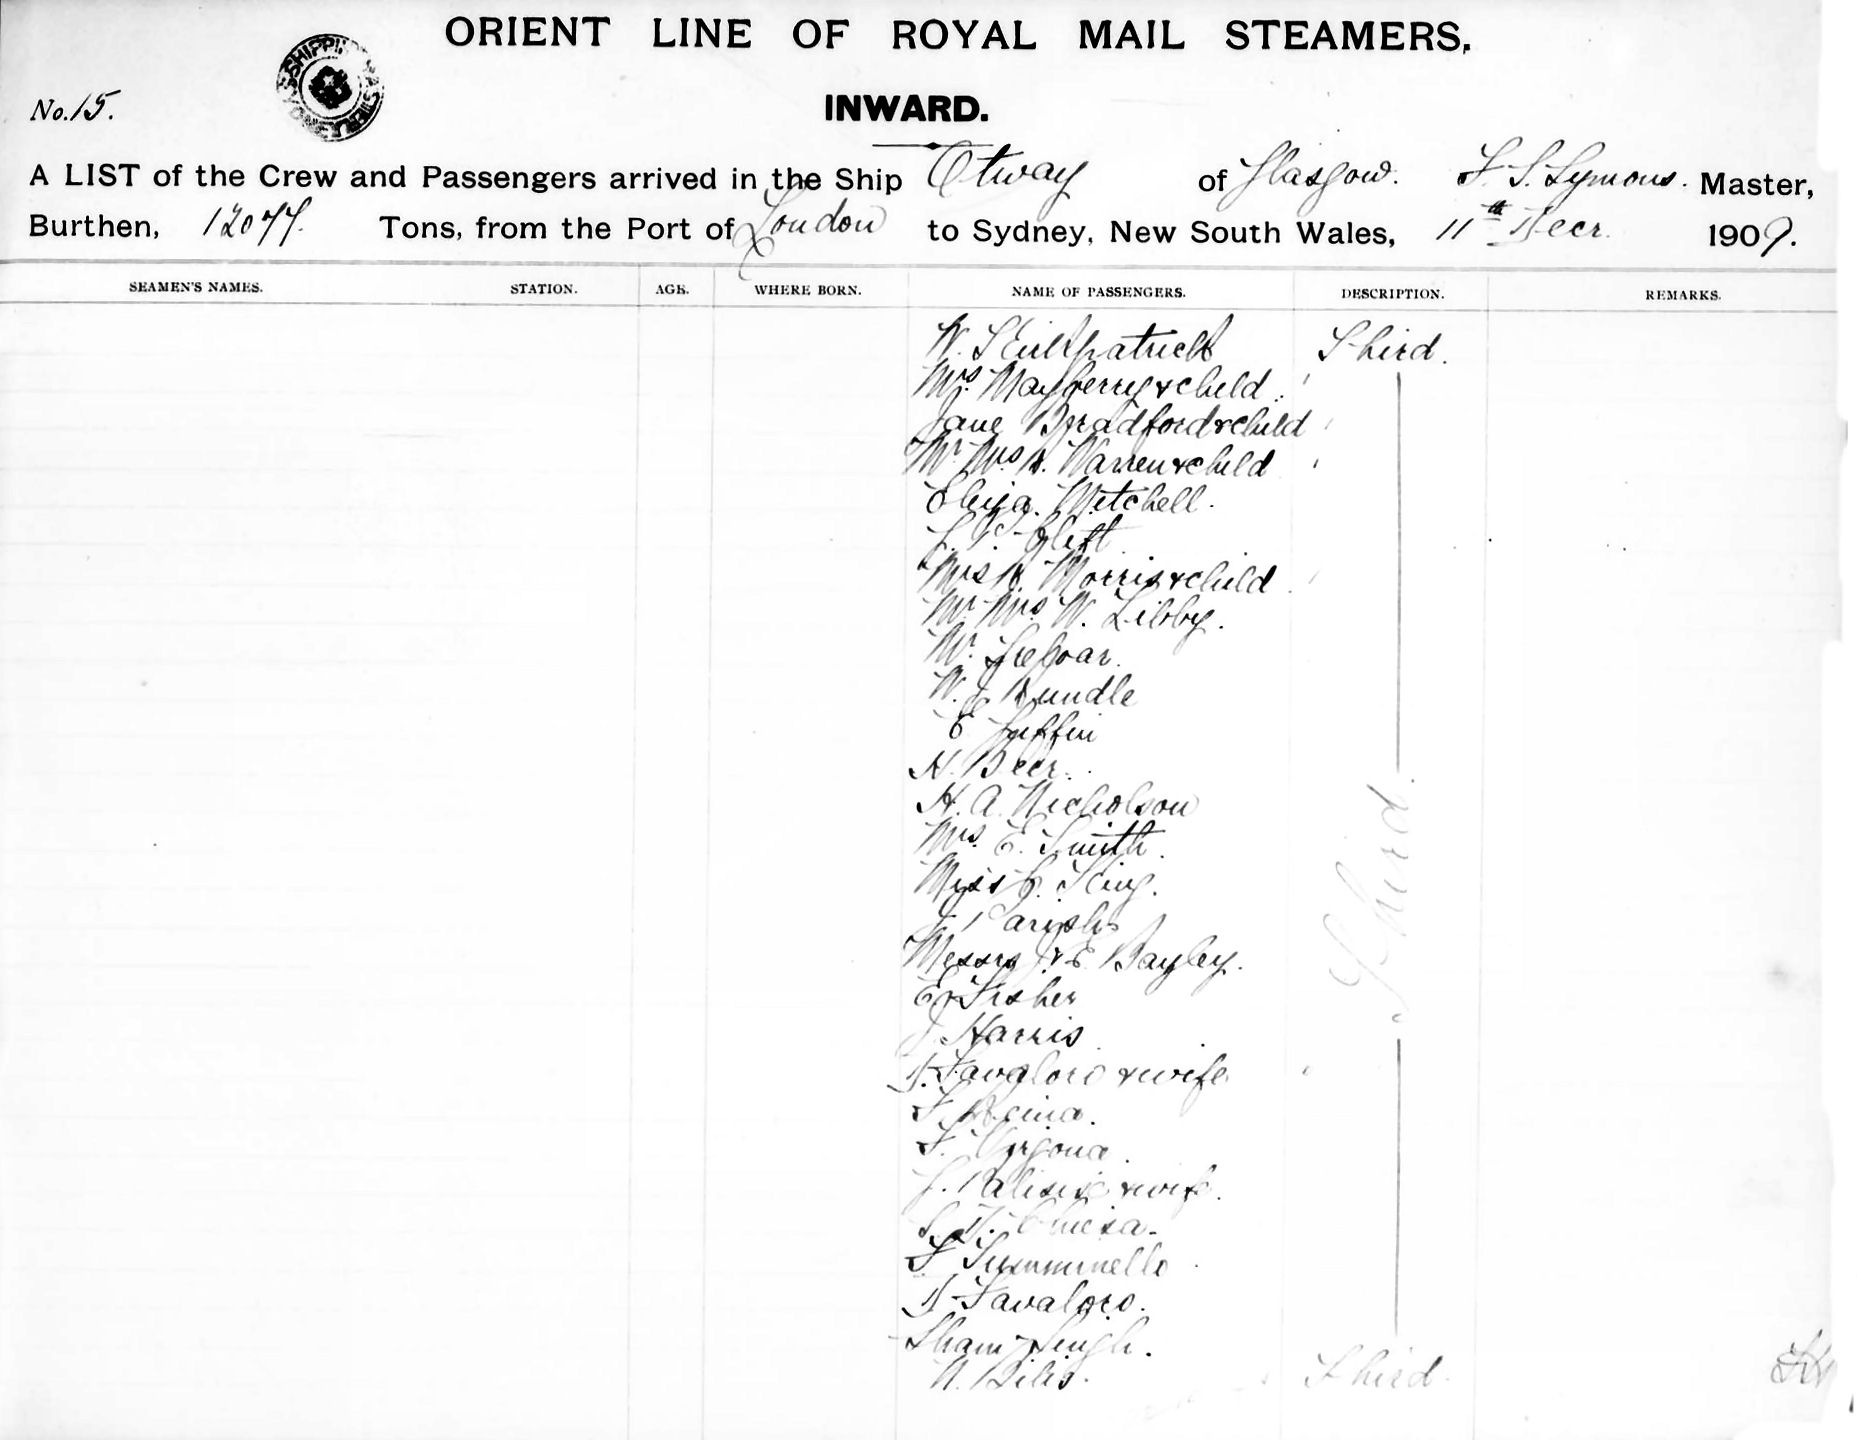 ORIENT LINE OF ROYAL MAIL STEAMERS.
No. 15.
INWARD.
A LIST of the Crew and Passengers arrived in the Ship Otway of Glasgow. F. S. Symons. Master,
Burthen, 12077. Tons, from the Port of London to Sydney, New South Wales, 11th Decr. 1909.
SEAMEN'S NAMES. STATION. AGE. WHERE BORN. NAME OF PASSENGERS. DESCRIPTION. REMARKS.
W. Kirkpatrick Third.
Mrs Mayberry & child
Jane Bradford & child
Mr Mrs Warren & child
Eliza. Mitchell.
Mrs Morris & child
Mr Mrs W. Libby.
W.
W. J. Rundle
E
H. Beer.
H. A. Nicholson
Mrs. E. Smith.
Miss King.
Parish
Messrs J. & E. Bayley.
Fisher
J Harris
Favaloro & wife
F. Reina.
F. Virgona.
Third
& wife.
Chiesa.
Favaloro.
Sham Singh.
N. Third.